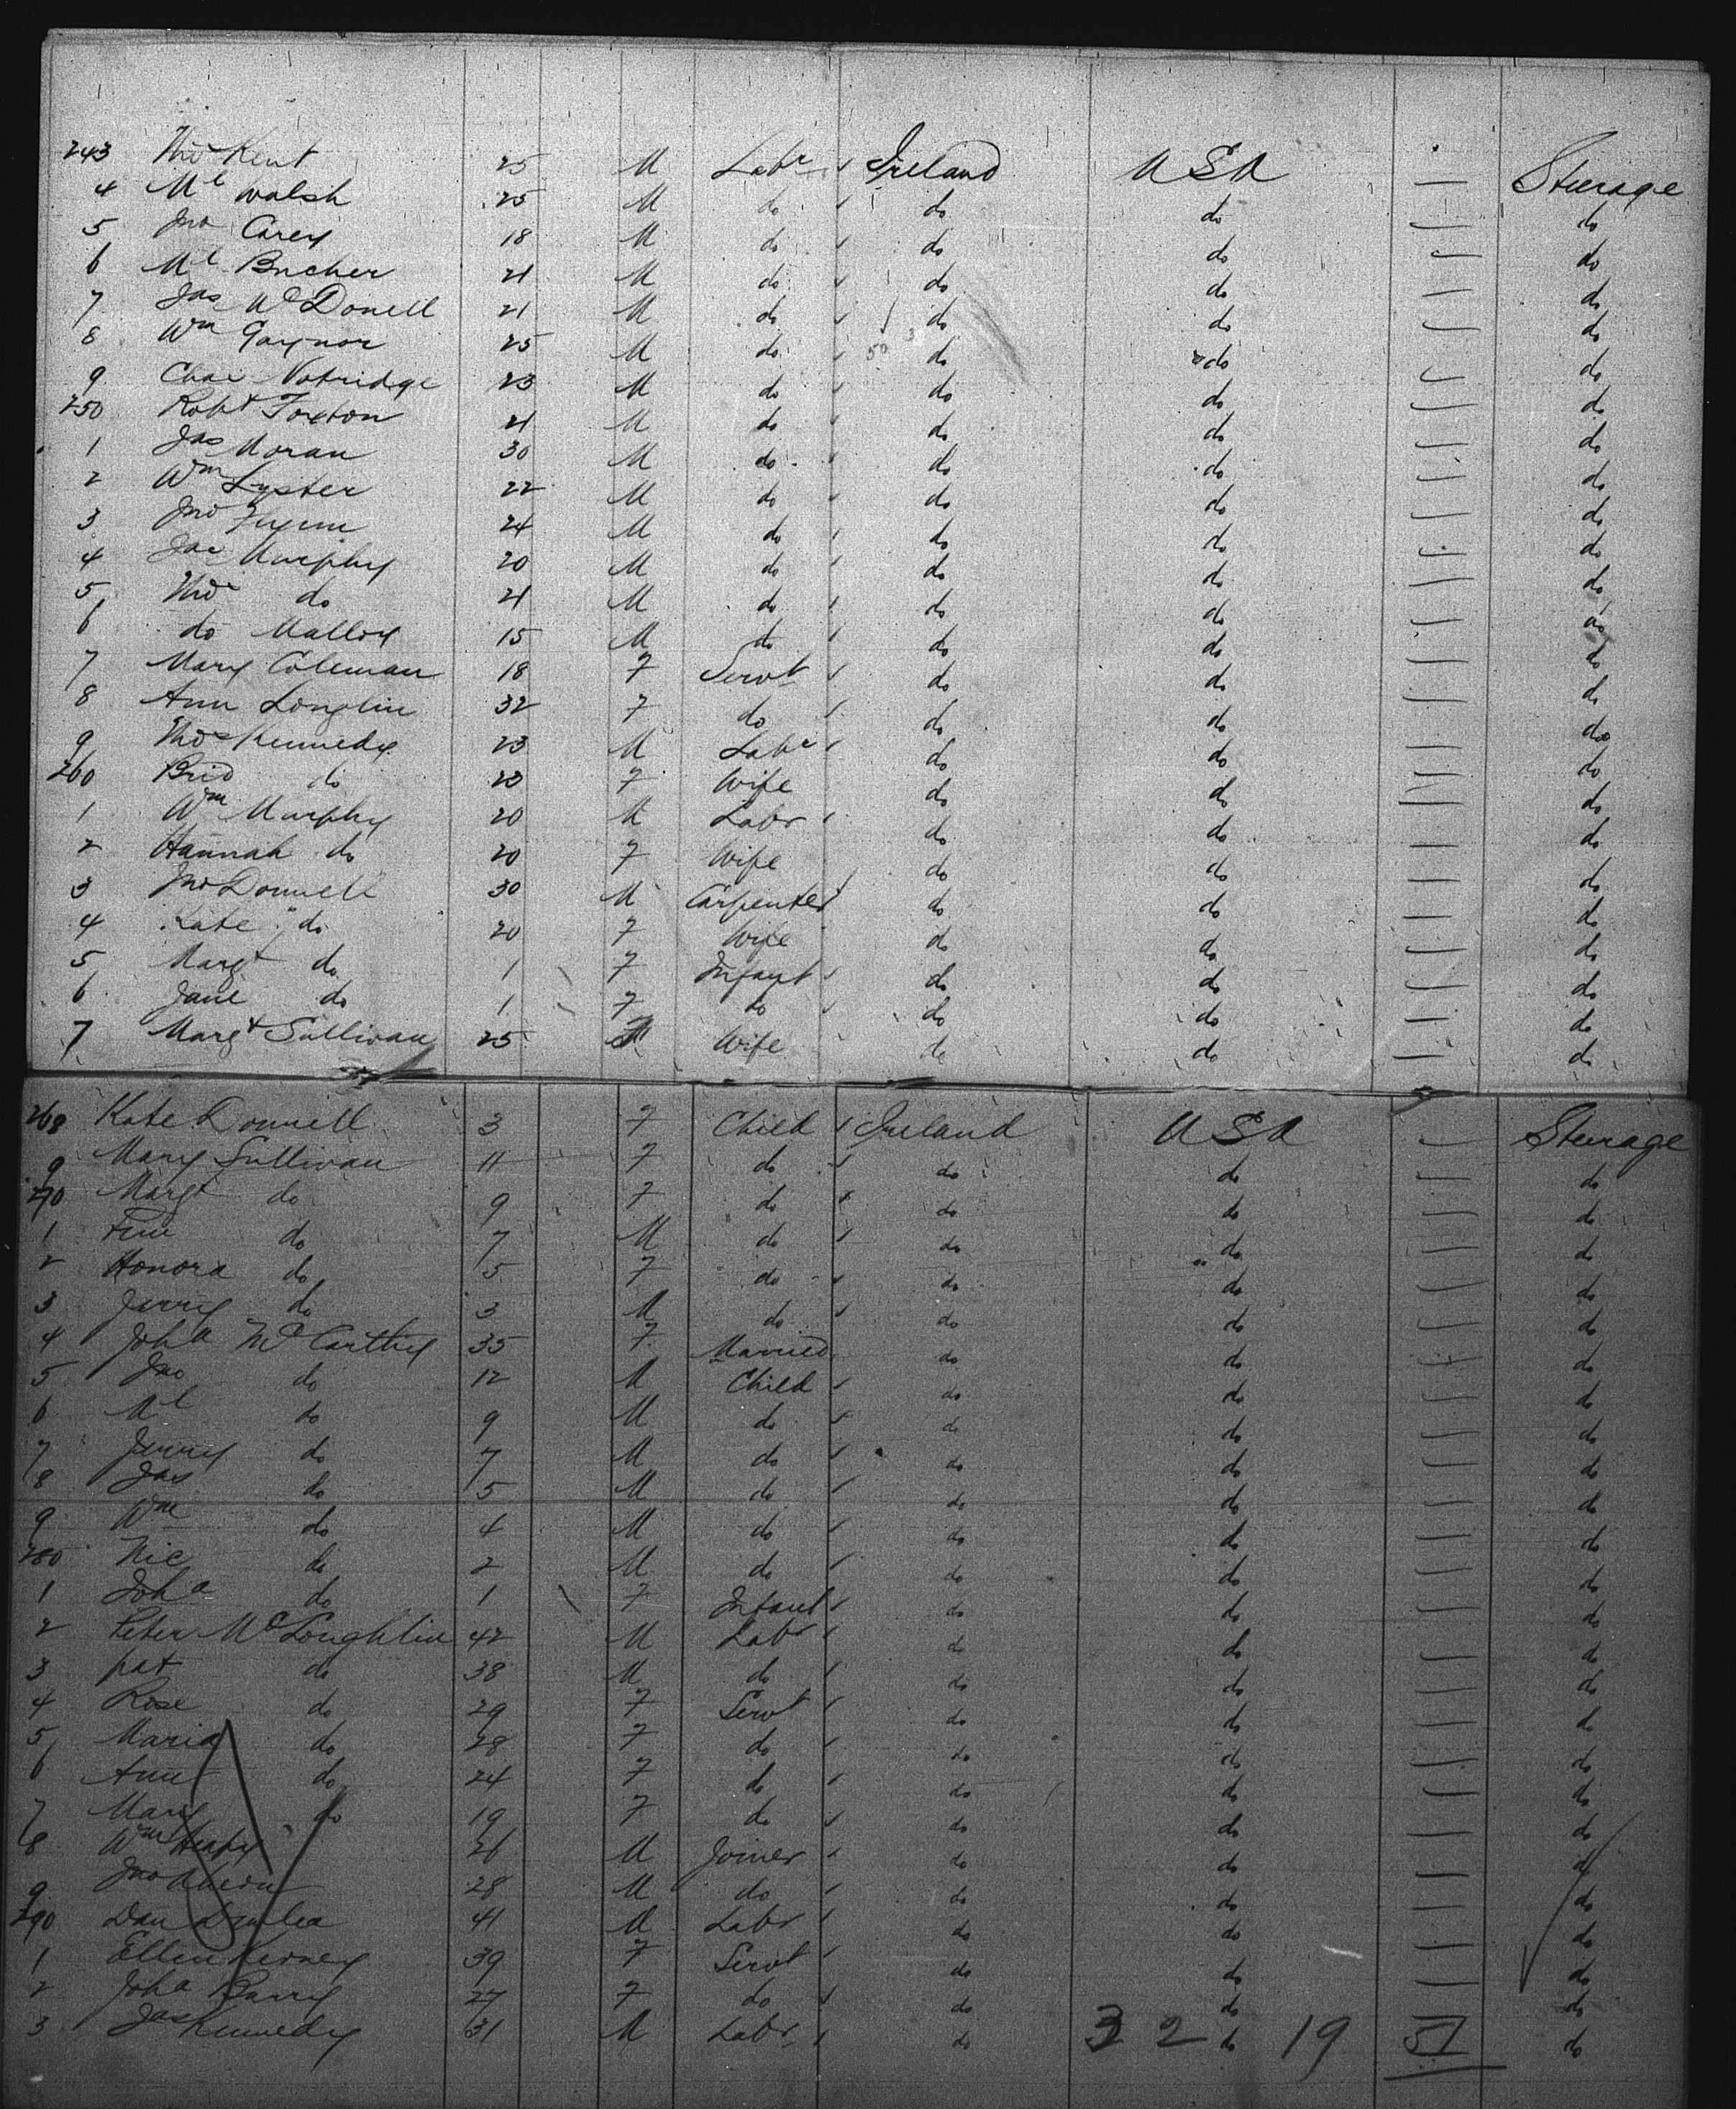 243 Thos Kent 25 M Labr Ireland USA Steerage
4 Ml Walsh 25 M do do do do
5 Jno Carey 18 M do do do do
6 Ml Bucher 21 M do do do do
7 Jas McDonell 21 M do do do do
8 Wm Gaynor 25 M do do do do
9 Chas Notridge 23 M do do do do
250 Robt Foxton 21 M do do do do
1 Jas Moran 30 M do do do do
2 Wm Lyster 22 M do do do do
3 Jno Flynn 24 M do do do do
4 Jas Murphy 20 M do do do do
5 Thos do 21 M do do do do
6 do Malloy 15 M do do do do
7 Mary Coleman 18 F Servt do do do
8 Ann Longlin 32 F do do do do
9 Thos Kennedy 23 M Labr do do do
260 Brid do 23 F Wife do do do
1 Wm Murphy 20 M Labr do do do
2 Hannah do 20 F Wife do do do
3 Jno Donnell 30 M Carpenter do do do
4 Kate do 20 F Wife do do do
5 Margt do 1 F Infant do do do
6 Jane do 1 F do do do do
7 Margt Sullivan 25 Wife do do do
268 Kate Donnell 3 F Child Ireland USA Steerage
9 Mary Sullivan 11 F do do do do
270 Margt do 9 F do do do do
1 do 7 M do do do do
2 Honora do 5 F do do do do
3 Jerry do 3 M do do do do
4 Joha McCarthy 35 F Married do do do
5 Jno do 12 M Child do do do
6 Ml do 9 M do do do do
7 Jerry do 7 M do do do do
8 Jas do 5 M do do do do
9 Wm do 4 M do do do do
280 Nic do 2 M do do do do
1 Joha do 1 F Infant do do do
2 Peter McLoughlin 42 M Labr do do do
3 Pat do 38 M do do do do
4 Rose do 29 F Servt do do do
5 Maria do 28 F do do do do
6 Ann do 24 F do do do do
7 Mary do 19 F do do do do
8 Wm Heafy 26 M Joiner do do do
9 Jno Ahern 28 M do do do do
290 Dan 41 M Labr do do do
1 Ellen Kerney 39 F Servt do do do
2 Joha Barry 27 F do do do do
3 Jas Kennedy 31 M Labr do do do
32 19 51